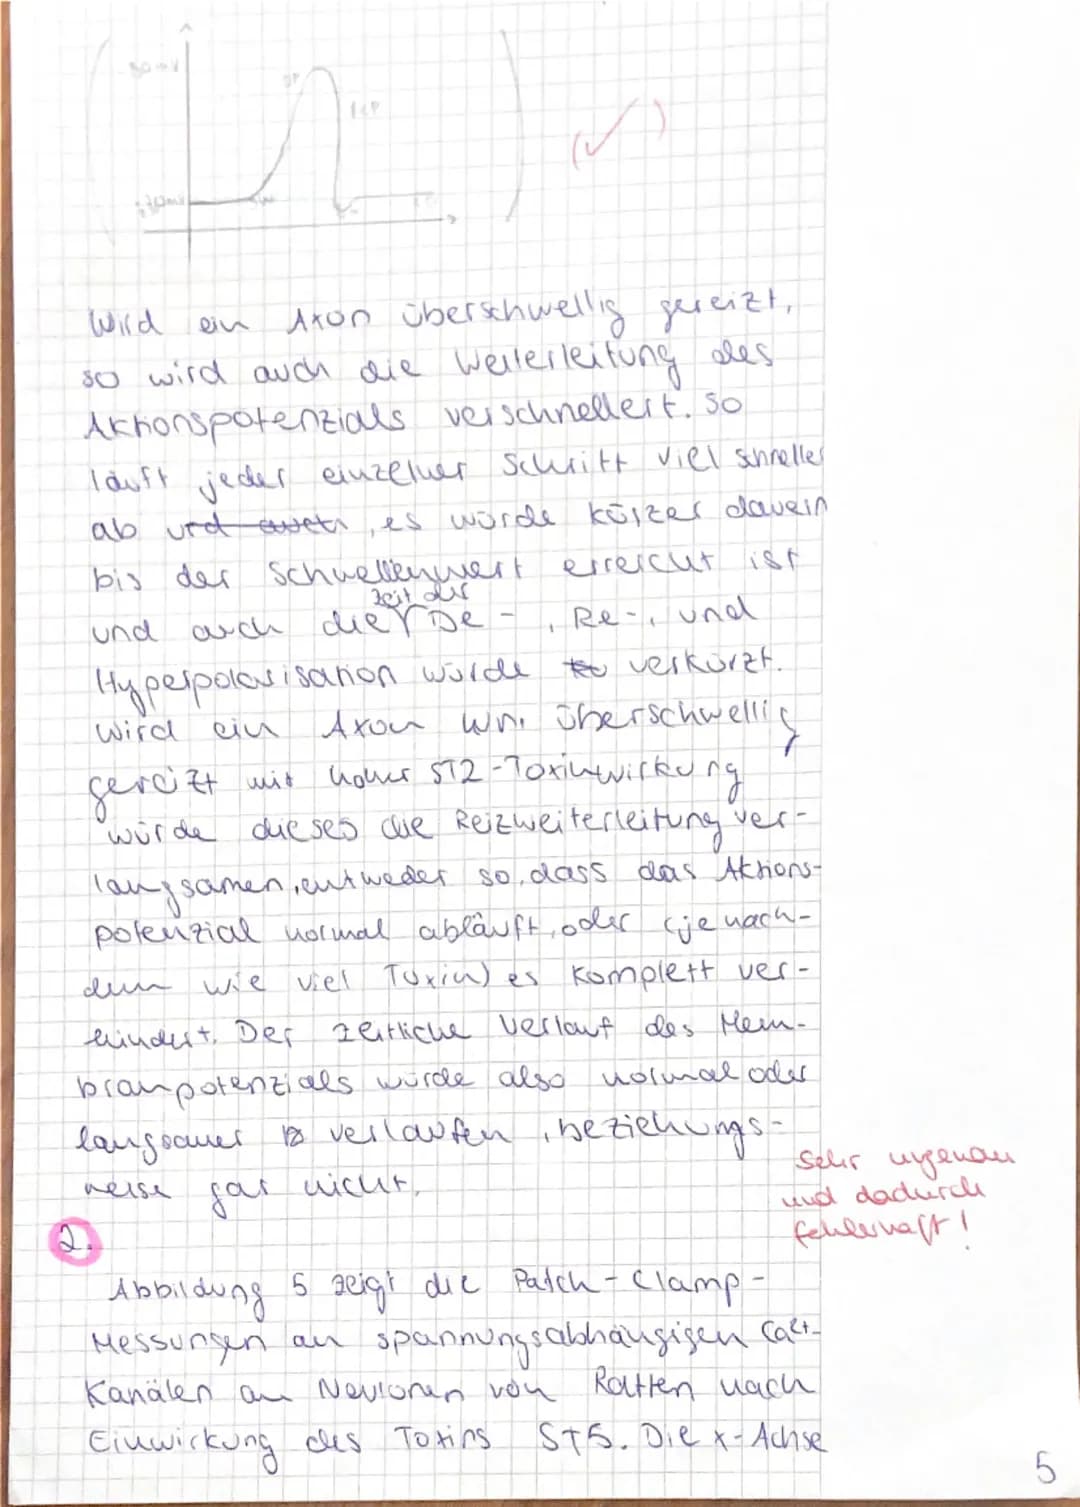 30 mV
DP
RP
-70mV
(✓)
Wird ein Axon überschwellig gereizt,
so wird auch die Weiterleitung des
Aktionspotenzials verschnellert. So
läuft jeder einzelner Schritt viel schneller
ab und auch, es würde kürzer dauern
bis der Schwellenwert erreicht ist
und auch die Zeit der De-, Re-, und
Hyperpolarisation würde verkürzt.
Wird ein Axon wn. überschwellig
gereizt mit hoher ST2-Toxinwirkung
würde dieses die Reizweiterleitung ver-
langsamen, entweder so, dass das Aktions-
potenzial normal abläuft, oder (je nach-
dem wie viel Toxin) es komplett ver-
hindert. Der zeitliche Verlauf des Mem-
branpotenzials würde also normal oder
langsamer verlaufen, beziehungs-
weise gar nicht.
Sehr ungenau
und dadurch
fehlerhaft!
2.
Abbildung 5 zeigt die Patch-Clamp-
Messungen an spannungsabhängigen Ca2+-
Kanälen an Neuronen von Ratten nach
Einwirkung des Toxins ST5. Die x-Achse
5